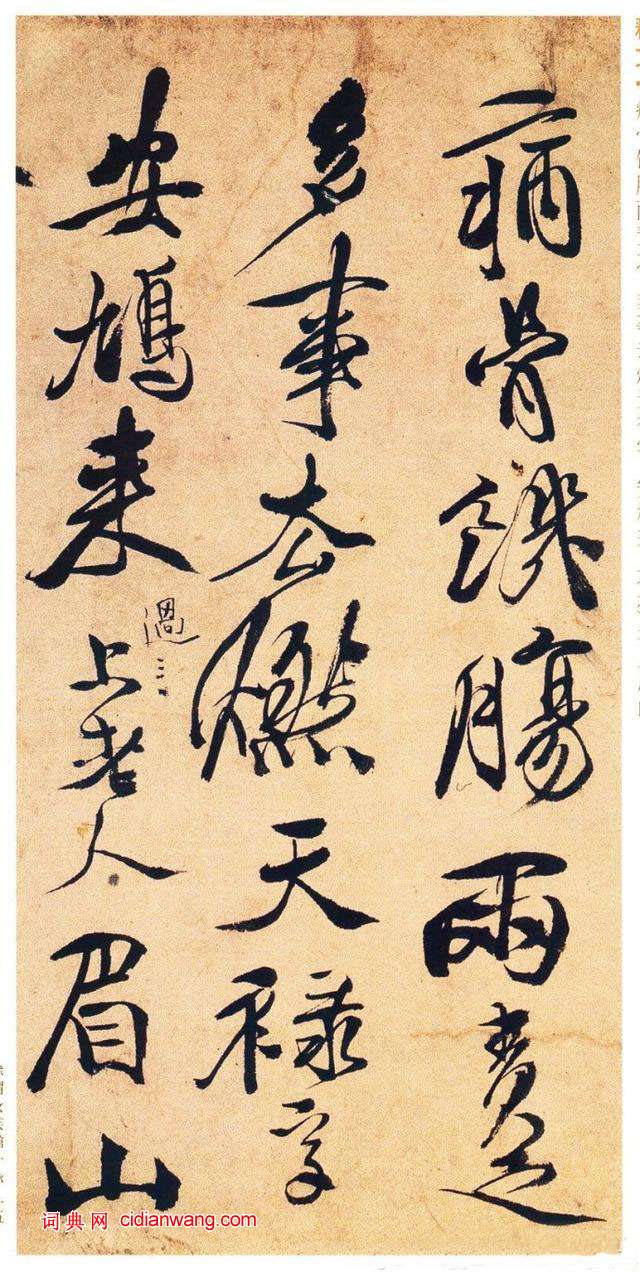 病骨饑腸兩
多事太燃天祿
安鳩來上老人眉山
過
词典网 cidianwang.com